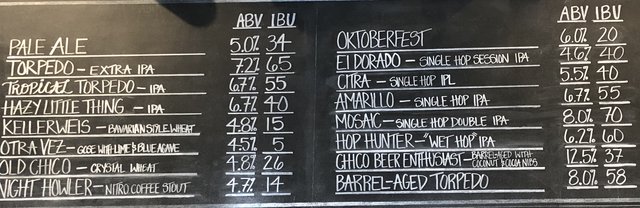 ABV IBU
PALE ALE 5.0% 34
TORPEDO - EXTRA IPA 7.2% 65
TROPICAL TORPEDO - IPA 6.7% 55
HAZY LITTLE THING - IPA 6.7% 40
KELLERWEIS - BAVARIAN STYLE WHEAT 4.8% 15
OTRA VEZ - GOSE WITH LIME & BLUE AGAVE 4.5% 5
OLD CHICO - CRYSTAL WHEAT 4.8% 26
NIGHT HOWLER - NITRO COFFEE STOUT 4.7% 14
ABV IBU
OKTOBERFEST 6.0% 20
El DORADO - SINGLE HOP SESSION IPA 4.6% 40
CITRA - SINGLE HOP IPL 5.5% 40
AMARILLO - SINGLE HOP IPA 6.7% 55
MOSAIC - SINGLE HOP DOUBLE IPA 8.0% 70
HOP HUNTER - "WET HOP" IPA 6.2% 60
CHICO BEER ENTHUSIAST - BARREL AGED WITH COCONUT & COCOA NIBS 12.5% 37
BARREL-AGED TORPEDO 8.0% 58